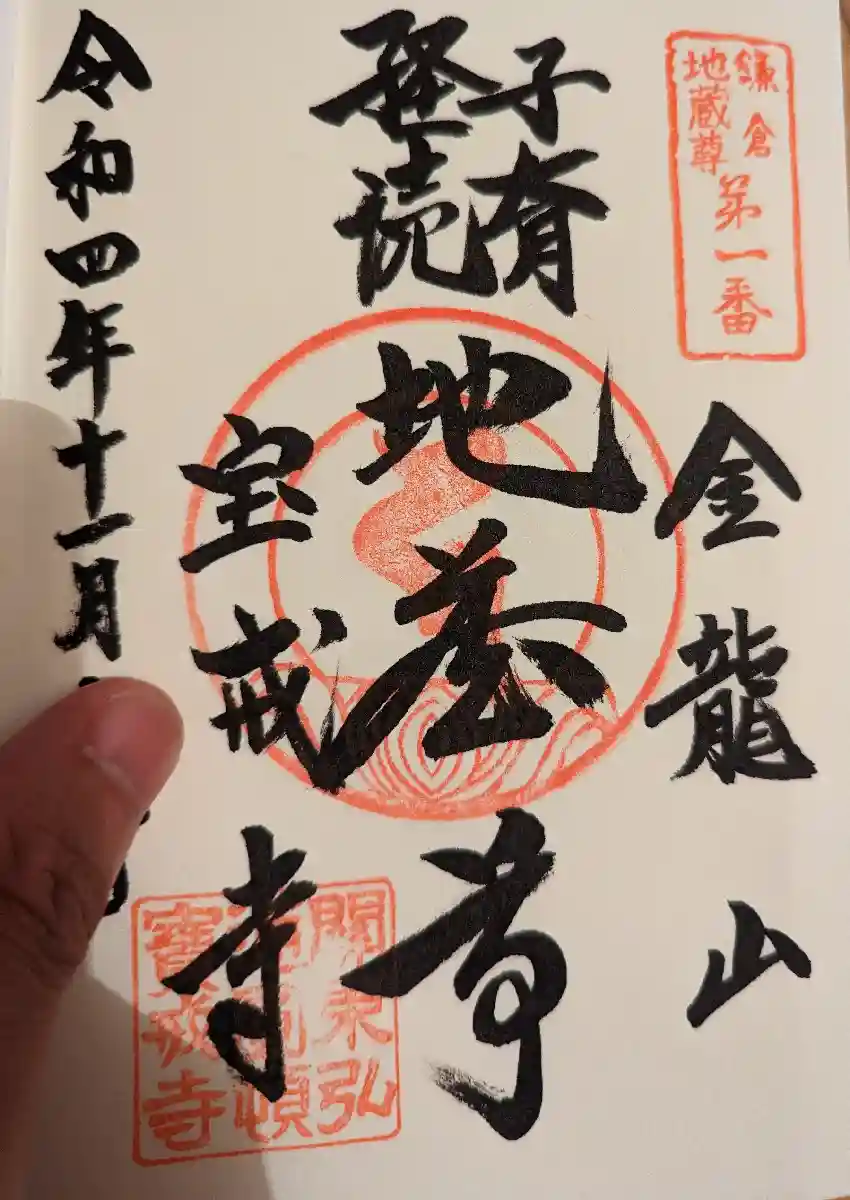 鎌倉
地蔵尊
第一番
金龍山
子育
経読
地蔵尊
宝戒寺
關東弘
頓
寶戒寺
令和四年十一月